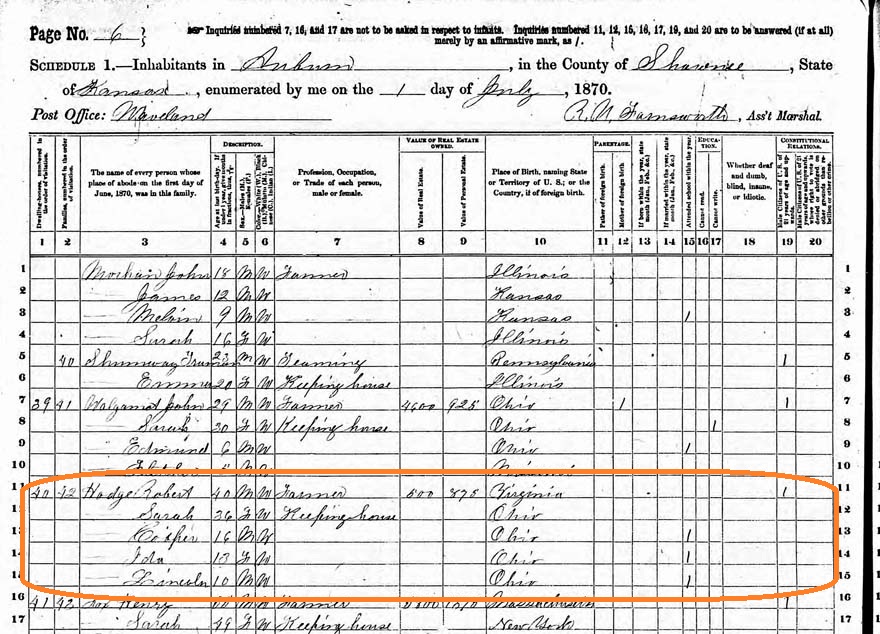 Page No. 6
Inquiries numbered 7, 16, and 17 are not to be asked in respect to infants. Inquiries numbered 11, 12, 15, 16, 17, 19, and 20 are to be answered (if at all)
merely by an affirmative mark, as /.
SCHEDULE 1.—Inhabitants in Auburn, in the County of Shawnee, State
of Kansas, enumerated by me on the 1 day of July, 1870.
Post Office: Waveland
Farnsworth, Ass't Marshal.
Dwelling-houses, numbered in the order of visitation.
Families, numbered in the order of visitation.
The name of every person whose place of abode on the first day of June, 1870, was in this family.
DESCRIPTION.
Age at last birth-day.
Sex.—Males (M.), Females (F.)
Profession, Occupation, or Trade of each person, male or female.
VALUE OF REAL ESTATE OWNED.
Value of Real Estate.
Value of Personal Estate.
Place of Birth, naming State or Territory of U. S.; or the Country, if of foreign birth.
PARENTAGE.
Father of foreign birth.
Mother of foreign birth.
If born within the year, state month (Jan., Feb., &c.)
If married within the year, state month (Jan., Feb., &c.)
EDUCATION.
Attended school within the year.
Cannot read.
Cannot write.
Whether deaf and dumb, blind, insane, or idiotic.
CONSTITUTIONAL RELATIONS.
1 2 3 4 5 6 7 8 9 10 11 12 13 14 15 16 17 18 19 20
1 John 18 M W Farmer Illinois 1
2 James 12 M W Kansas 2
3 Melvin 9 M W Kansas / 3
4 Sarah 16 F W Illinois 4
5 40 Shumway Truman 23 M W Teaming Pennsylvania / 5
6 Emma 20 F W Keeping house Illinois 6
7 39 41 John 29 M W Farmer 4600 925 Ohio / / 7
8 Sarah 30 F W Keeping house Ohio / 8
9 Edmund 6 M W Ohio / 9
10 10
11 40 42 Hodge Robert 40 M W Farmer 800 875 Virginia / 11
12 Sarah 36 F W Keeping house Ohio 12
13 Cooper 16 M W Ohio / 13
14 Ida 13 F W Ohio / 14
15 Lincoln 10 M W Ohio / 15
16 41 Henry M W Farmer Massachusetts / 16
17 Sarah 49 F W Keeping house New York 17